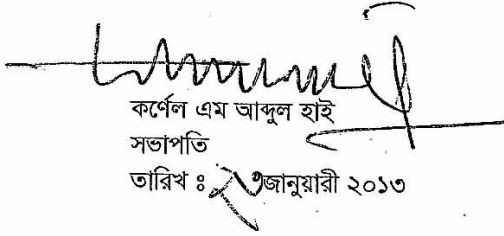 কর্ণেল এম আব্দুল হাই
সভাপতি
তারিখ ঃ ২৩জানুয়ারী ২০১৩